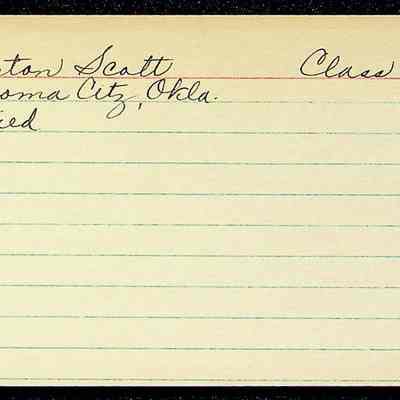 ton Scott Class
oma City, Okla.
ied